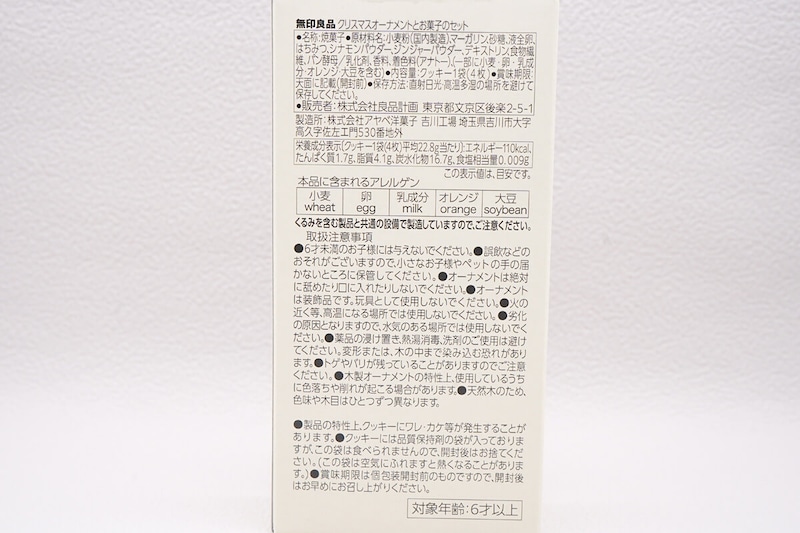 無印良品 クリスマスオーナメントとお菓子のセット
●名称:焼菓子●原材料名:小麦粉(国内製造)、マーガリン、砂糖、液全卵、
はちみつ、シナモンパウダー、ジンジャーパウダー、デキストリン、食物繊
維、パン酵母/乳化剤、香料、着色料(アナトー)、(一部に小麦・卵・乳成
分・オレンジ・大豆を含む)●内容量:クッキー1袋(4枚)●賞味期限:
天面に記載(開封前)●保存方法:直射日光・高温多湿の場所を避けて
保存してください。
●販売者:株式会社良品計画 東京都文京区後楽2-5-1
製造所:株式会社アヤベ洋菓子 吉川工場 埼玉県吉川市大字
高久字佐左エ門530番地外
栄養成分表示(クッキー1袋(4枚)平均22.8g当たり):エネルギー110kcal、
たんぱく質1.7g、脂質4.1g、炭水化物16.7g、食塩相当量0.009g
この表示値は、目安です。
本品に含まれるアレルゲン
小麦 卵 乳成分 オレンジ 大豆
wheat egg milk orange soybean
くるみを含む製品と共通の設備で製造していますので、ご注意ください。
取扱注意事項
●6才未満のお子様には与えないでください。●誤飲などの
おそれがございますので、小さなお子様やペットの手の届
かないところに保管してください。●オーナメントは絶対
に舐めたり口に入れたりしないでください。●オーナメント
は装飾品です。玩具として使用しないでください。●火の
近く等、高温になる場所では使用しないでください。●劣化
の原因となりますので、水気のある場所では使用しないでく
ださい。●薬品の浸け置き、熱湯消毒、洗剤のご使用は避け
てください。変形または、木の中まで染み込む恐れがありま
す。●トゲやバリが残っていることがありますのでご注意
ください。●木製オーナメントの特性上、使用しているうち
に色落ちや削れが起こる場合があります。●天然木のため、
色味や木目はひとつずつ異なります。
●製品の特性上、クッキーにワレ・カケ等が発生することが
あります。●クッキーには品質保持剤の袋が入っておりま
すが、この袋は食べられませんので、開封後はお捨てくださ
い。(この袋は空気にふれますと熱くなることがありま
す。)●賞味期限は個包装開封前のものですので、開封後
はお早めにお召し上がりください。
対象年齢:6才以上